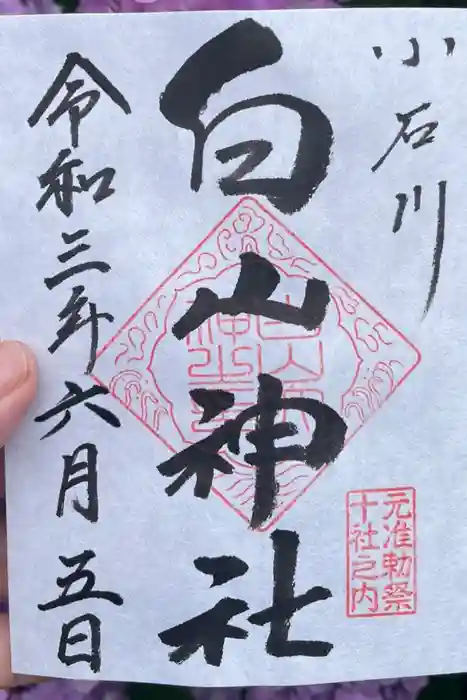 小石川
白山神社
元准勅祭
十社之内
令和三年六月五日